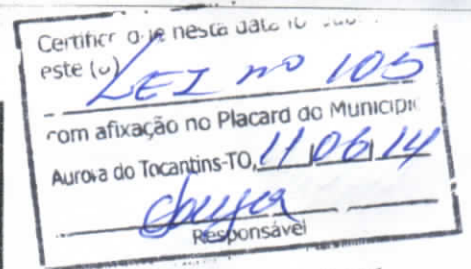 Certifico que nesta data
este (o) LEI nº 105
com afixação no Placard do Municipio
Aurora do Tocantins-TO, 11/06/14
Souza
Responsável